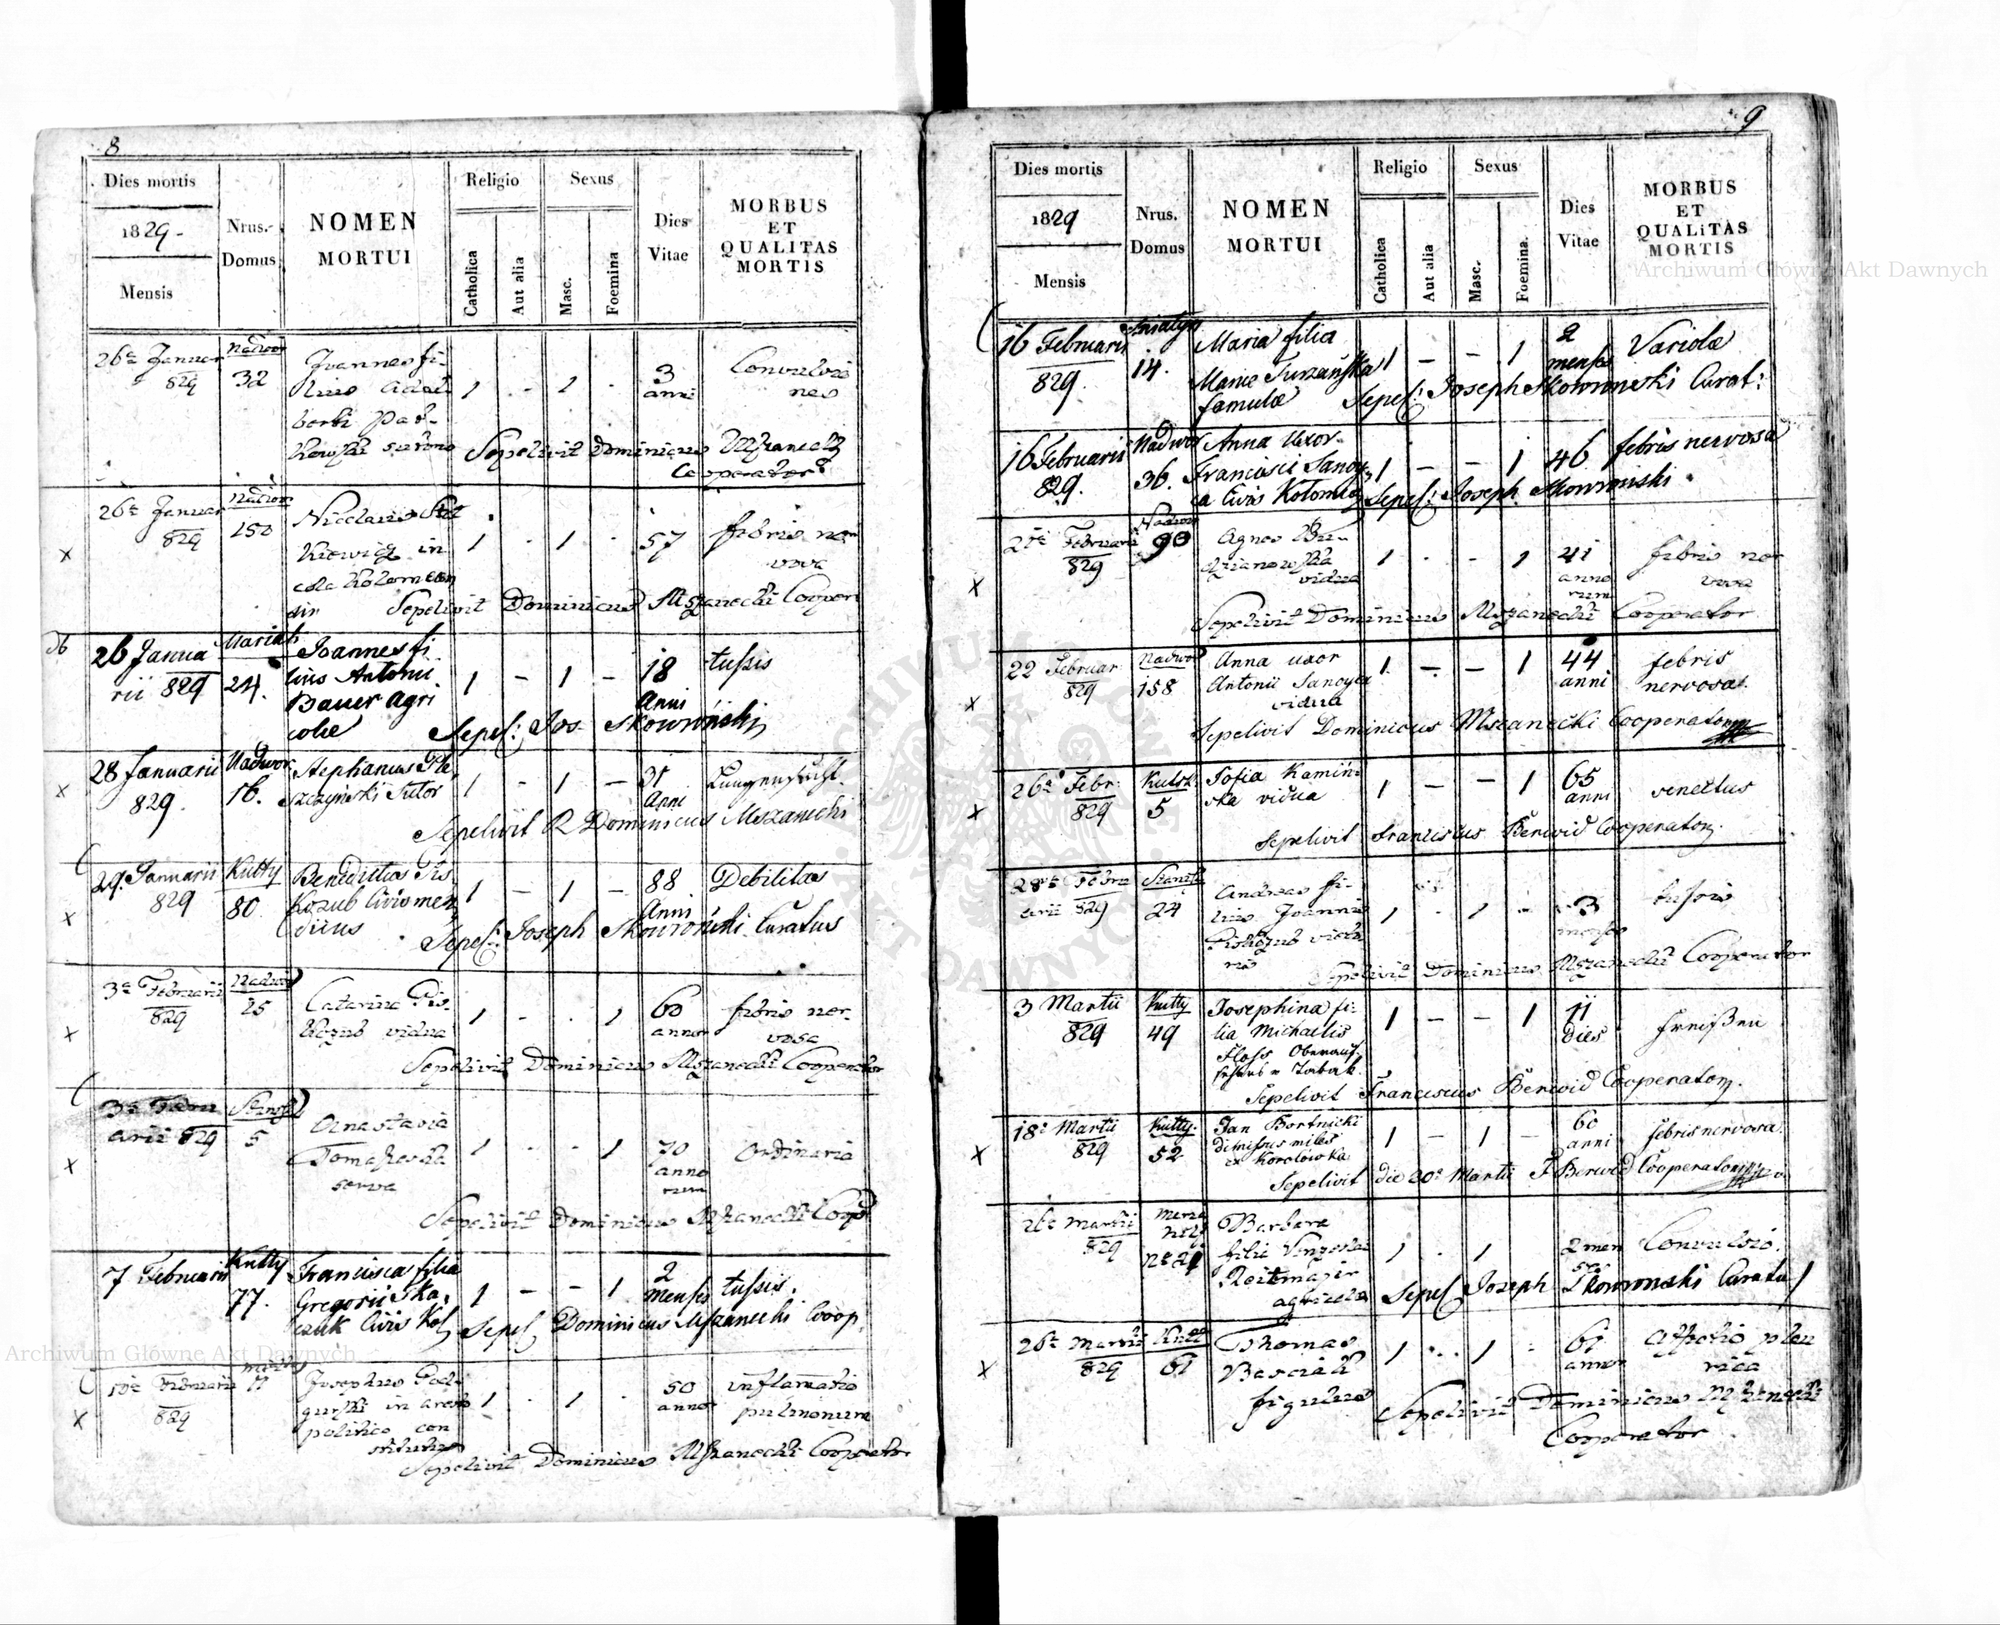 8
Dies mortis
1829.
Mensis
Nrus.
Domus
NOMEN
MORTUI
Religio
Catholica
Aut alia
Sexus
Masc.
Foemina
Dies
Vitae
MORBUS
ET
QUALITAS
MORTIS
26a Januar
829
Nadwor
32
Joannes fi-
lius Adal
berti
1 - 1 -
3
anni
Convulsio
nes
Sepelivit Dominicus Mszanecki
Cooperator
26a Januar
829
Nadwor
150
Nicolaus
in
cola Kolomeen
sis
1 - 1 -
57
febris ner
vosa
Sepelivit Dominicus Mszanecki Cooper
26 Janua
rii 829
Mariah
24.
Joannes fi
lius Antonii
Bauer Agri
colae
1 - 1 -
18
Anni
tussis
Sepel: Jos. Skowroński
28 Januarii
829.
Nadwor.
16.
Stephanus Ple
szczyński Sutor
1 - 1 -
31
Anni
Lungensucht.
Sepelivit R Dominicus Mszanecki
29. Januarii
829
Kutty
80.
Benedictus Pis
kozub Civis men
dicus
1 - 1 -
88
Anni
Debilitas
Sepel: Joseph Skowroński Curatus
3a Februarii
829
Nadwor
25
Catarina Pis-
kozub vidua
1 - - 1
60
annor
febris ner-
vosa
Sepelivit Dominicus Mszanecki Cooperator
3a Febru
arii 829
5
Anastasia
Tomaszeska
serva
1 - - 1
70
anno
rum
Ordinaria
Sepelivit Dominicus Mszanecki Coop
7 Februarii
Kutty
77.
Francisca filia
Gregorii Ska
czuk Civis Kol
1 - - 1
2
menses
tussis.
Sepel Dominicus Mszanecki Coop.
10a Februarii
829
11
Josephus God-
gurski in arest
politico con
stitutus
1 - 1 -
50
annor
inflamatio
pulmonum
Sepelivit Dominicus Mszanecki Cooperator
9
Dies mortis
1829
Mensis
Nrus.
Domus
NOMEN
MORTUI
Religio
Catholica
Aut alia
Sexus
Masc.
Foemina.
Dies
Vitae
MORBUS
ET
QUALITAS
MORTIS
16 Februarii
829.
Sniatyn
14.
Maria filia
Mariae Turzańska
famulae
1 - - 1
2
menses
Variolae
Sepel: Joseph Skowronski Curat:
16 Februarii
829.
Nadwor
36.
Anna Uxor
Francisci Sanoy
ca Civis Kolomey
1 - - 1
46
febris nervosa
Sepel: Joseph Skowroński
21a Februarii
829
Nadwor
90
Agnes
vidua
1 - - 1
41
anno
rum
febris ner
vosa
Sepelivit Dominicus Mszanecki Cooperator
22 Februar
829
Nadwor
158
Anna uxor
Antonii Sanoyca
vidua
1 - - 1
44
anni
febris
nervosa.
Sepelivit Dominicus Mszanecki Cooperator
26a Febr:
829
Kutsk.
5
Sofia Kamiń-
ska vidua
1 - - 1
65
anni
senectus
Sepelivit Franciscus Berwid Cooperator.
Febru
arii 829
24
Andreas fi-
lius Joannis
Piskozub
1 - 1 -
3
menses
tussis
Sepelivit Dominicus Mszanecki Cooperator
3 Martii
829
Kutty
49
Josephina fi-
lia Michaelis
Floss
1 - - 1
11
Dies
Sepelivit Franciscus Berwid Cooperator.
18a Martii
829
Kutty.
52
Jan Bortnicki
dimissus miles
ex Korolowka
1 - 1 -
60
anni
febris nervosa.
Sepelivit die 20a Martii F Berwid Cooperator
26a Martii
829
No 21
Barbara
filia
Reitmajer
agricola
1 - 1
2 men
ses
Convulsio.
Sepel Joseph Skowronski Curatus
26a Martii
829
61
Thomas
figulus
1 - 1 -
annor
pleu
rica
Sepelivit Dominicus Mszanecki
Cooperator
Archiwum Główne Akt Dawnych
Archiwum Główne Akt Dawnych